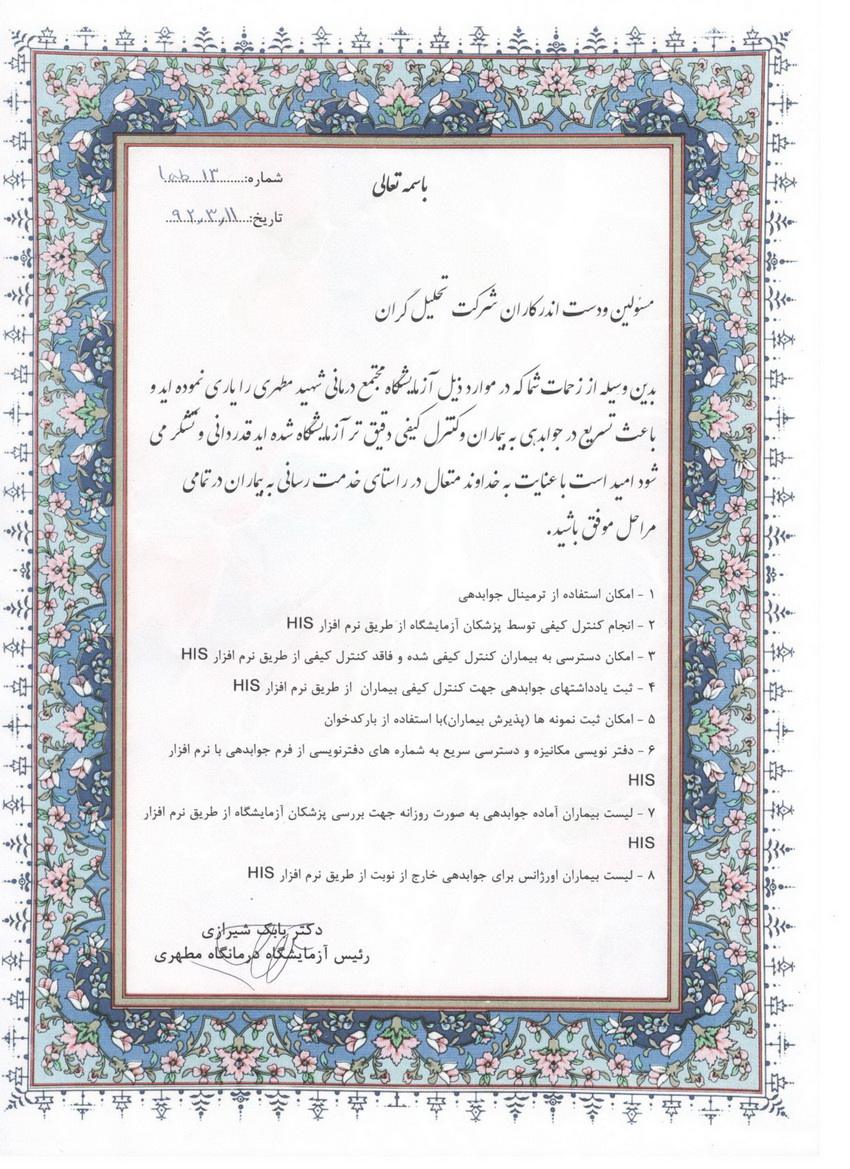 باسمه تعالی
شماره:........lab ۱۳........
تاریخ:....۹۲,۳,۱۱....
مسئولین ودست اندرکاران شرکت تحلیل گران
بدین وسیله از زحمات شما که در موارد ذیل آزمایشگاه مجتمع درمانی شهید مطهری را یاری نموده اید و
باعث تسریع در جوابدهی به بیماران وکنترل کیفی دقیق تر آزمایشگاه شده اید قدردانی و تشکر می
شود امید است با عنایت به خداوند متعال در راستای خدمت رسانی به بیماران در تمامی
مراحل موفق باشید.
۱ - امکان استفاده از ترمینال جوابدهی
۲ - انجام کنترل کیفی توسط پزشکان آزمایشگاه از طریق نرم افزار HIS
۳ - امکان دسترسی به بیماران کنترل کیفی شده و فاقد کنترل کیفی از طریق نرم افزار HIS
۴ - ثبت یادداشتهای جوابدهی جهت کنترل کیفی بیماران از طریق نرم افزار HIS
۵ - امکان ثبت نمونه ها (پذیرش بیماران)با استفاده از بارکدخوان
۶ - دفتر نویسی مکانیزه و دسترسی سریع به شماره های دفترنویسی از فرم جوابدهی با نرم افزار
HIS
۷ - لیست بیماران آماده جوابدهی به صورت روزانه جهت بررسی پزشکان آزمایشگاه از طریق نرم افزار
HIS
۸ - لیست بیماران اورژانس برای جوابدهی خارج از نوبت از طریق نرم افزار HIS
دکتر بابک شیرازی
رئیس آزمایشگاه درمانگاه مطهری